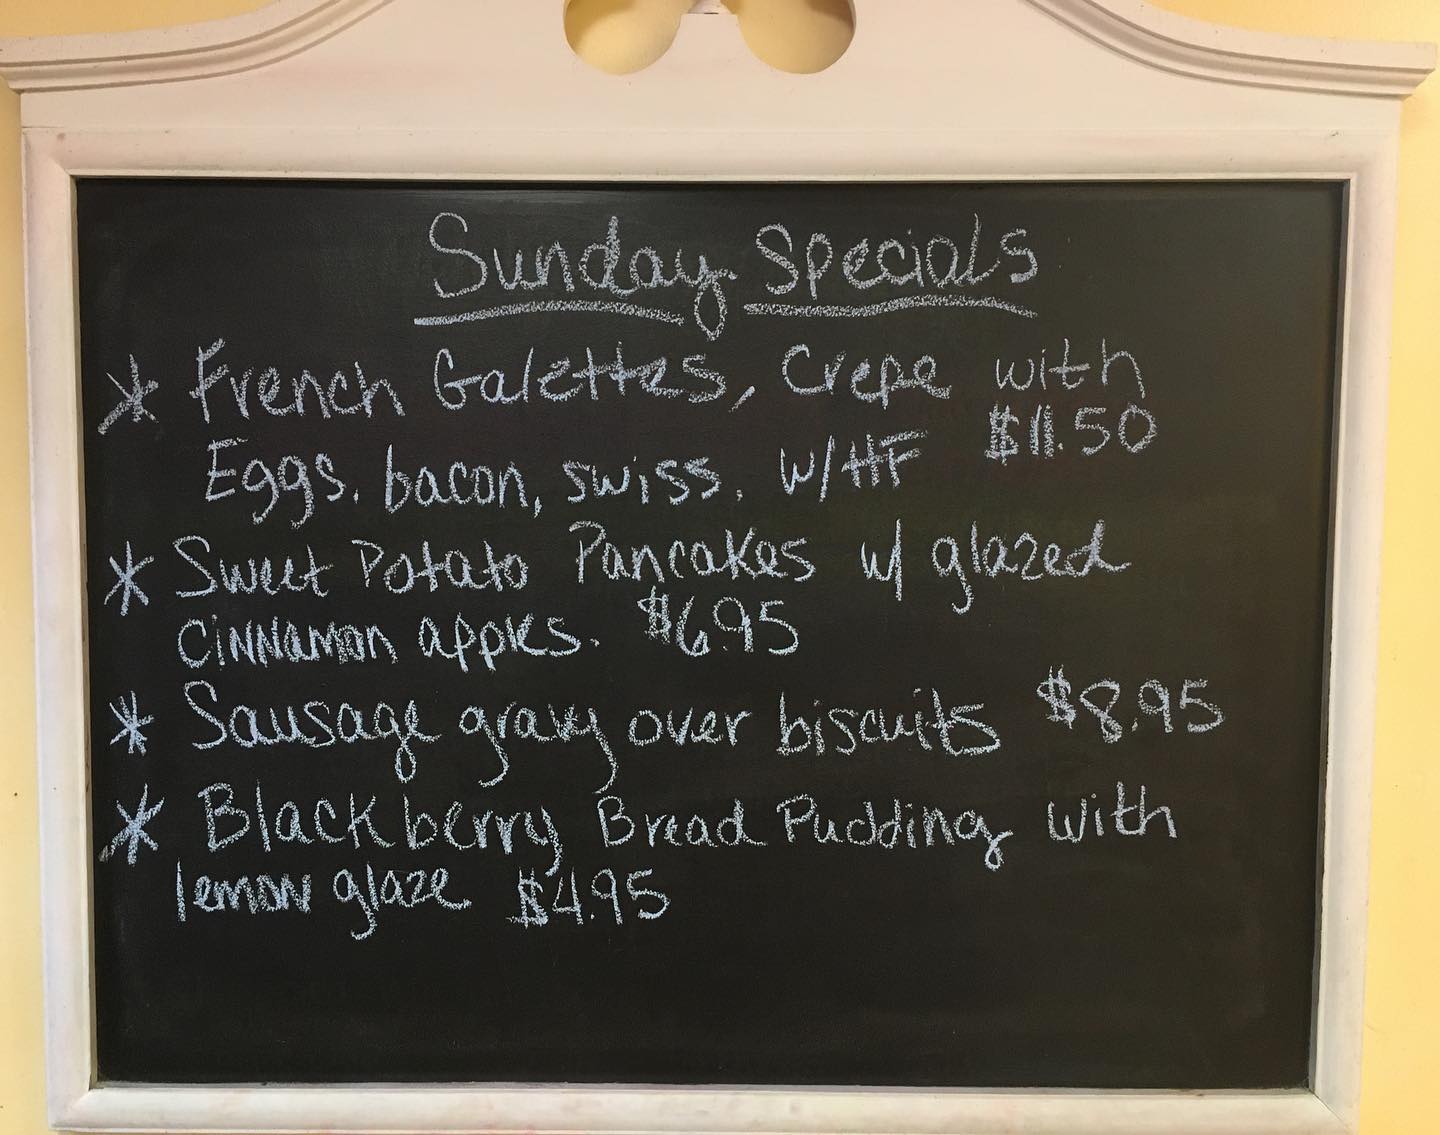 Sunday Specials
* French Galettes, Crepe with
Eggs, bacon, swiss, w/HF $11.50
* Sweet Potato Pancakes w/ glazed
cinnamon apples. $6.95
* Sausage gravy over biscuits $8.95
* Blackberry Bread Pudding with
lemon glaze $4.95